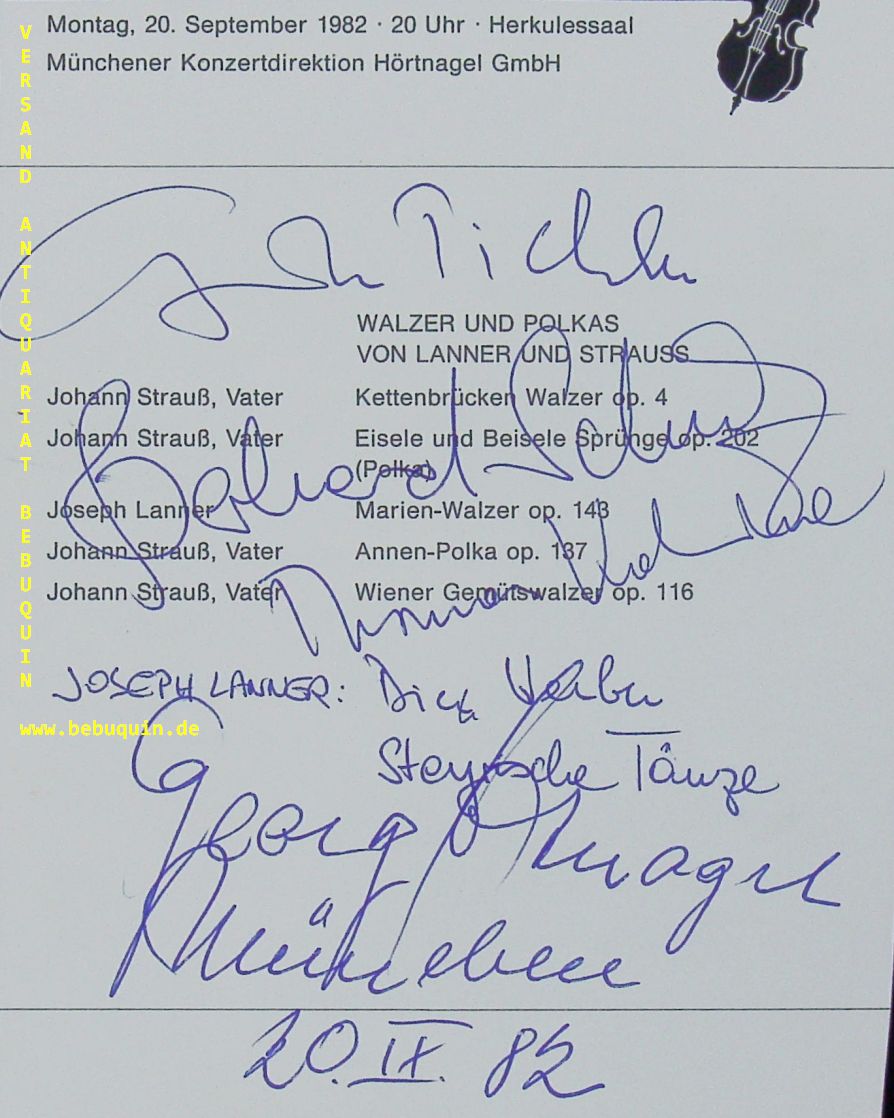 Montag, 20. September 1982 · 20 Uhr · Herkulessaal
Münchener Konzertdirektion Hörtnagel GmbH
VERSAND ANTIQUARIAT BEBUQUIN
Pichler
WALZER UND POLKAS
VON LANNER UND STRAUSS
Johann Strauß, Vater Kettenbrücken Walzer op. 4
Johann Strauß, Vater Eisele und Beisele Sprünge op. 202
(Polka)
Gerhard Schulz
Joseph Lanner Marien-Walzer op. 143
Johann Strauß, Vater Annen-Polka op. 137
Thomas Kakuska
Johann Strauß, Vater Wiener Gemütswalzer op. 116
JOSEPH LANNER: Die Werber
Steyrische Tänze
www.bebuquin.de
Georg Hörtnagel
München
20. IX. 82